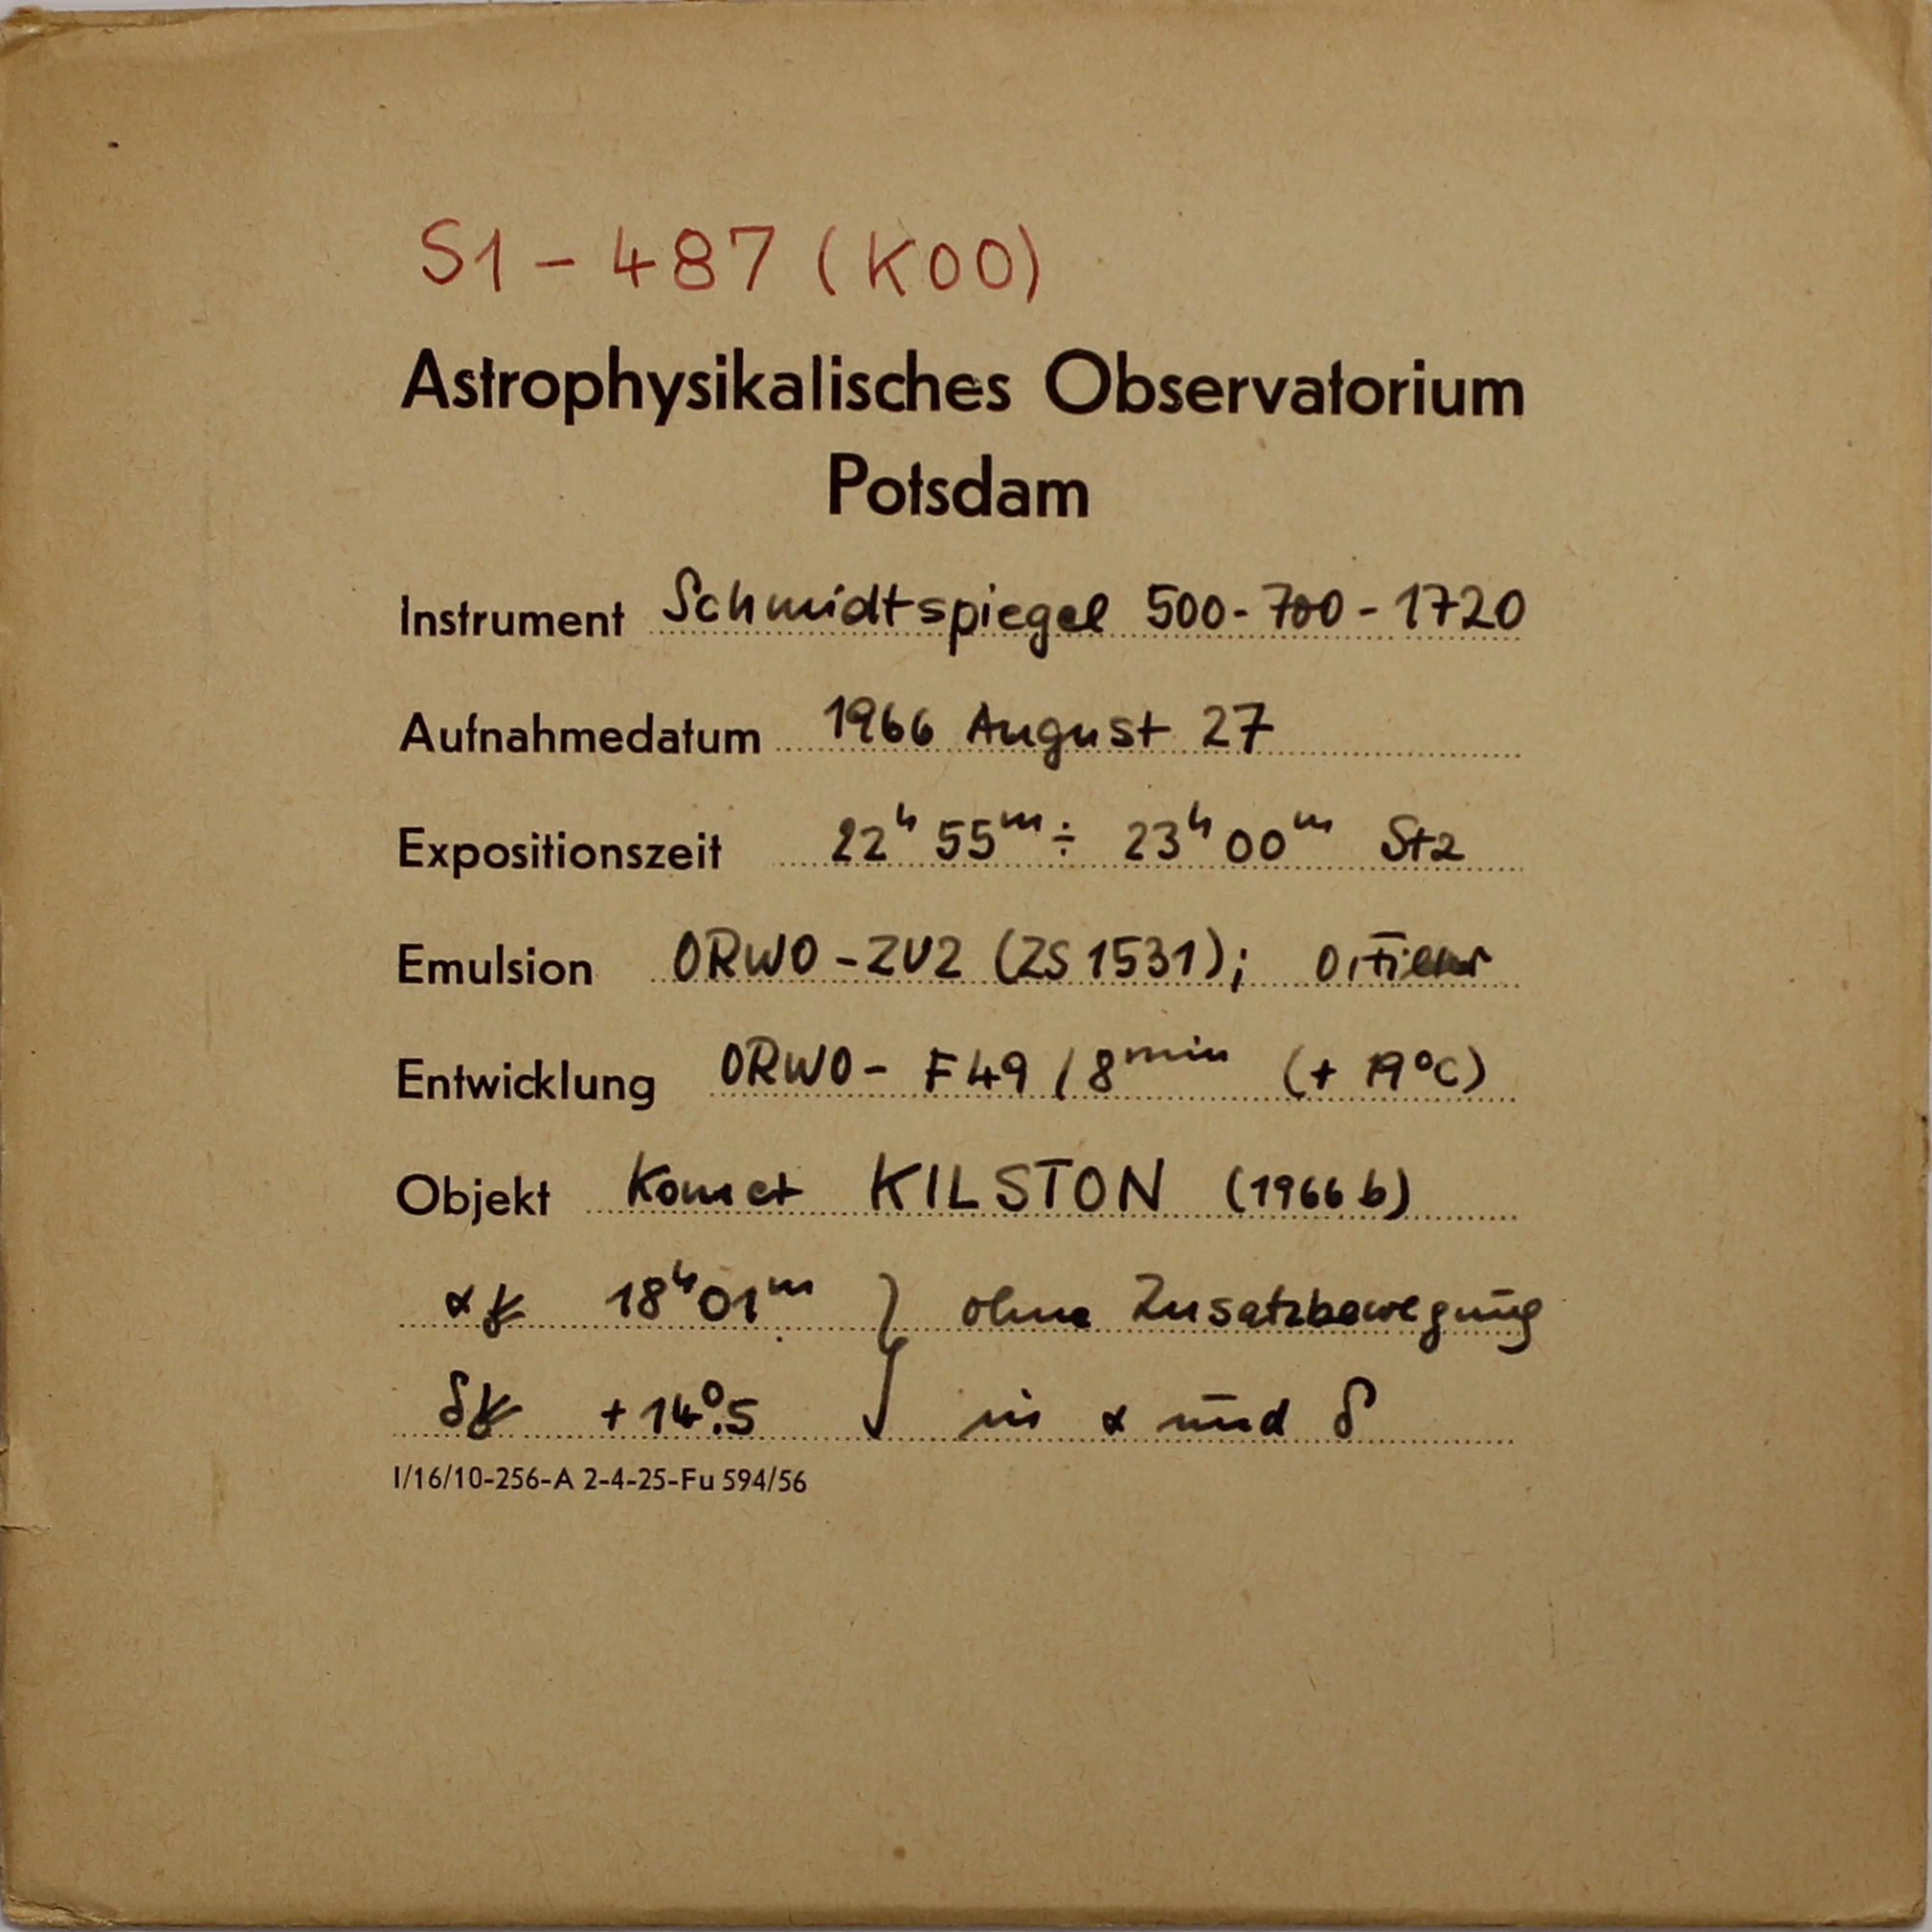 S1 - 487 (K00)
Astrophysikalisches Observatorium
Potsdam
Instrument Schmidtspiegel 500-700-1720
Aufnahmedatum 1966 August 27
Expositionszeit 22ʰ 55ᵐ ÷ 23ʰ 00ᵐ Stz
Emulsion ORWO-ZU2 (ZS 1531);
Entwicklung ORWO- F49 / 8ᵐⁱⁿ (+ 19°C)
Objekt Komet KILSTON (1966 b)
α 18ʰ01ᵐ } ohne Zusatzbewegung
δ +14°.5 } in α und δ
I/16/10-256-A 2-4-25-Fu 594/56